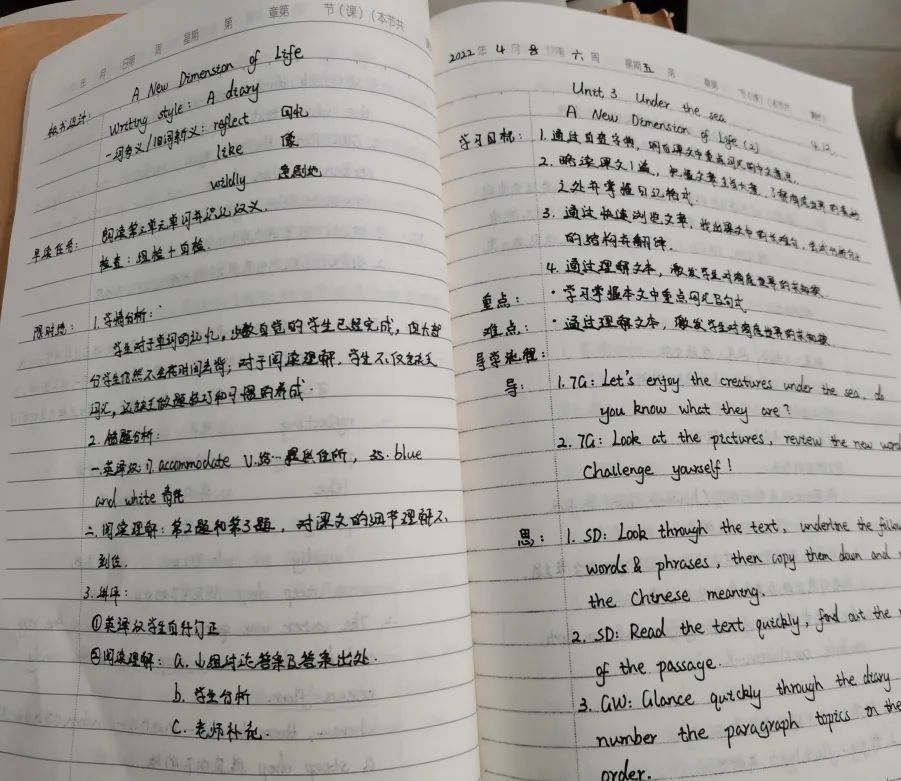 年 月 日第 周 星期 第 章第 节(课)(本节共
板书设计: A New Dimension of Life
Writing style: A diary
一词多义/旧词新义: reflect 回忆
like 像
wildly 急剧地
早读任务: 朗读第三单元单词并识记汉义.
检查: 组检+自检
限时练: 1. 学情分析:
学生对于单词的记忆, 少数自觉的学生已经完成, 但大部
分学生仍然不会花时间去背; 对于阅读理解, 学生不仅缺乏
词汇, 还缺乏做题技巧和习惯的养成.
2. 错题分析:
一.英译汉: 17. accommodate v.给…提供住所, 35. blue
and white 青花
二.阅读理解: 第2题和第3题, 对课文的细节理解不
到位.
3. 讲评:
①英译汉学生自行订正
②阅读理解: a. 小组讨论答案及答案出处.
b. 学生分析
c. 老师补充.
2022年 4月 8 日第 六 周 星期五 第 章第 节(课)(本节共
Unit 3 Under the sea
A New Dimension of Life (2) 4.12.
学习目标: 1. 通过自查字典, 明白课文中重点词汇的中文意思.
2. 略读课文1遍, 把握文章主旨大意, 了解海底世界的
之处并掌握日记格式.
3. 通过快速浏览文章, 找出课文中的长难句, 尝试分析句子
的结构并翻译.
4. 通过理解文本, 激发学生对海底世界的求知欲.
重点: · 学习掌握本文中重点词汇及句式
难点: · 通过理解文本, 激发学生对海底世界的求知欲
导学流程:
导: 1. TG: Let's enjoy the creatures under the sea, do
you know what they are?
2. TG: Look at the pictures, review the new word
Challenge yourself!
思: 1. SD: Look through the text, underline the follow
words & phrases, then copy them down and
the Chinese meaning.
2. SD: Read the text quickly, find out the
of the passage.
3. GW: Glance quickly through the diary
number the paragraph topics in the
order.